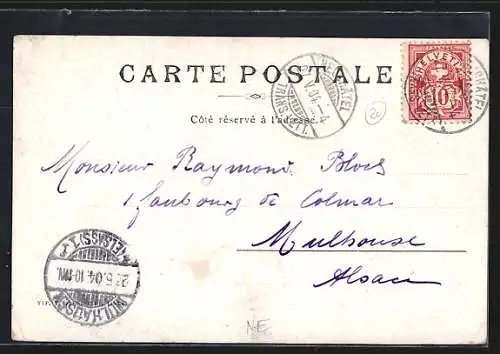 CARTE POSTALE
Côté réservé à l'adresse.
HELVETIA
10
NEUCHATEL
V.04.–4
20
Monsieur Raymond Bloch
1 faubourg de Colmar
Mulhouse
Alsace
MÜLHAUSEN
(ELSASS) 1
5.04.10-11V.
NE